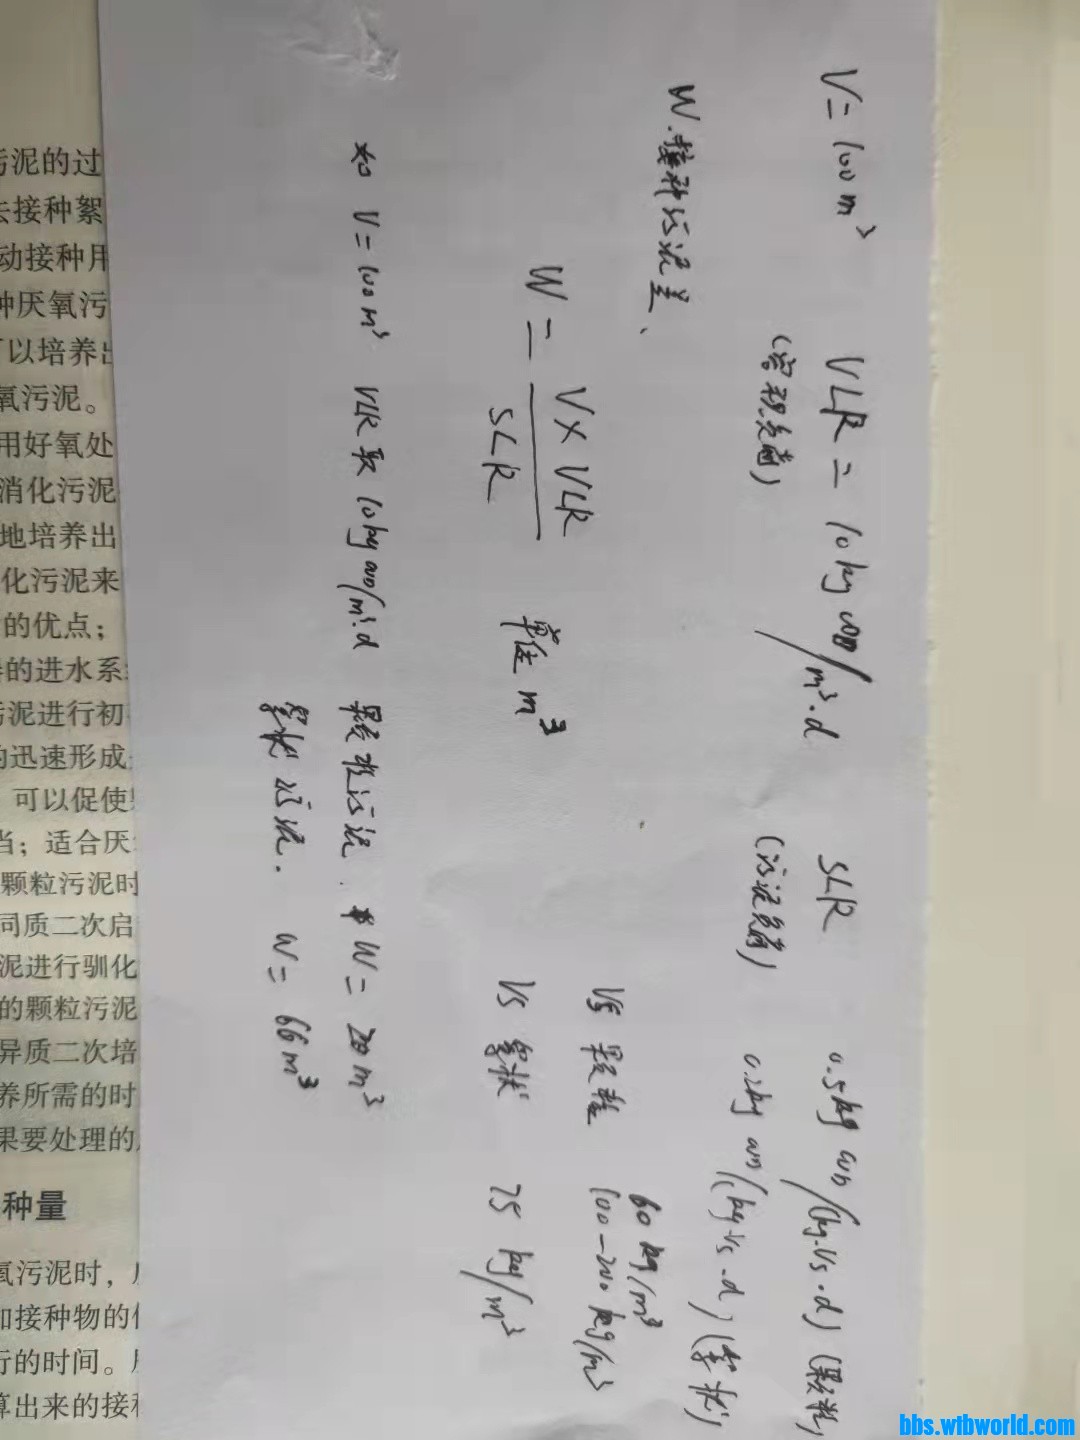 V = 100 m³ VLR = 10 kg COD/m³·d SLR 0.5kg COD/(kg·VS·d) (颗粒)
(容积负荷) (污泥负荷) 0.2kg COD/(kg·VS·d) (絮状)
W:接种污泥量、
60 kg/m³
VS 颗粒 100-200 kg/m³
W = V×VLR / SLR 单位 m³
VS 絮状 25 kg/m³
如 V=100m³ VLR取 10kg COD/m³·d 颗粒污泥. W = 20 m³
絮状污泥. W = 66m³
污泥的过
去接种絮
动接种用
种厌氧污
可以培养出
氧污泥。
用好氧处
消化污泥
地培养出
化污泥来
的优点;
的进水系
污泥进行初
的迅速形成
可以促使
当;适合厌
颗粒污泥时
同质二次启
泥进行驯化
的颗粒污泥
异质二次培
养所需的时
果要处理的
种量
氧污泥时,
如接种物的
行的时间。
算出来的接种
bbs.wibworld.com